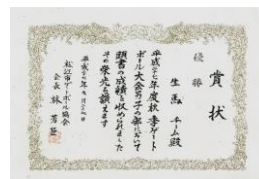 賞状
優勝
生馬チーム殿
平成二七年度秋季ゲート
ボール大会男子の部において
頭書の成績を収められました
その栄光を讃えます
平成二七年九月二七日
松江市ゲートボール協会
会長 林